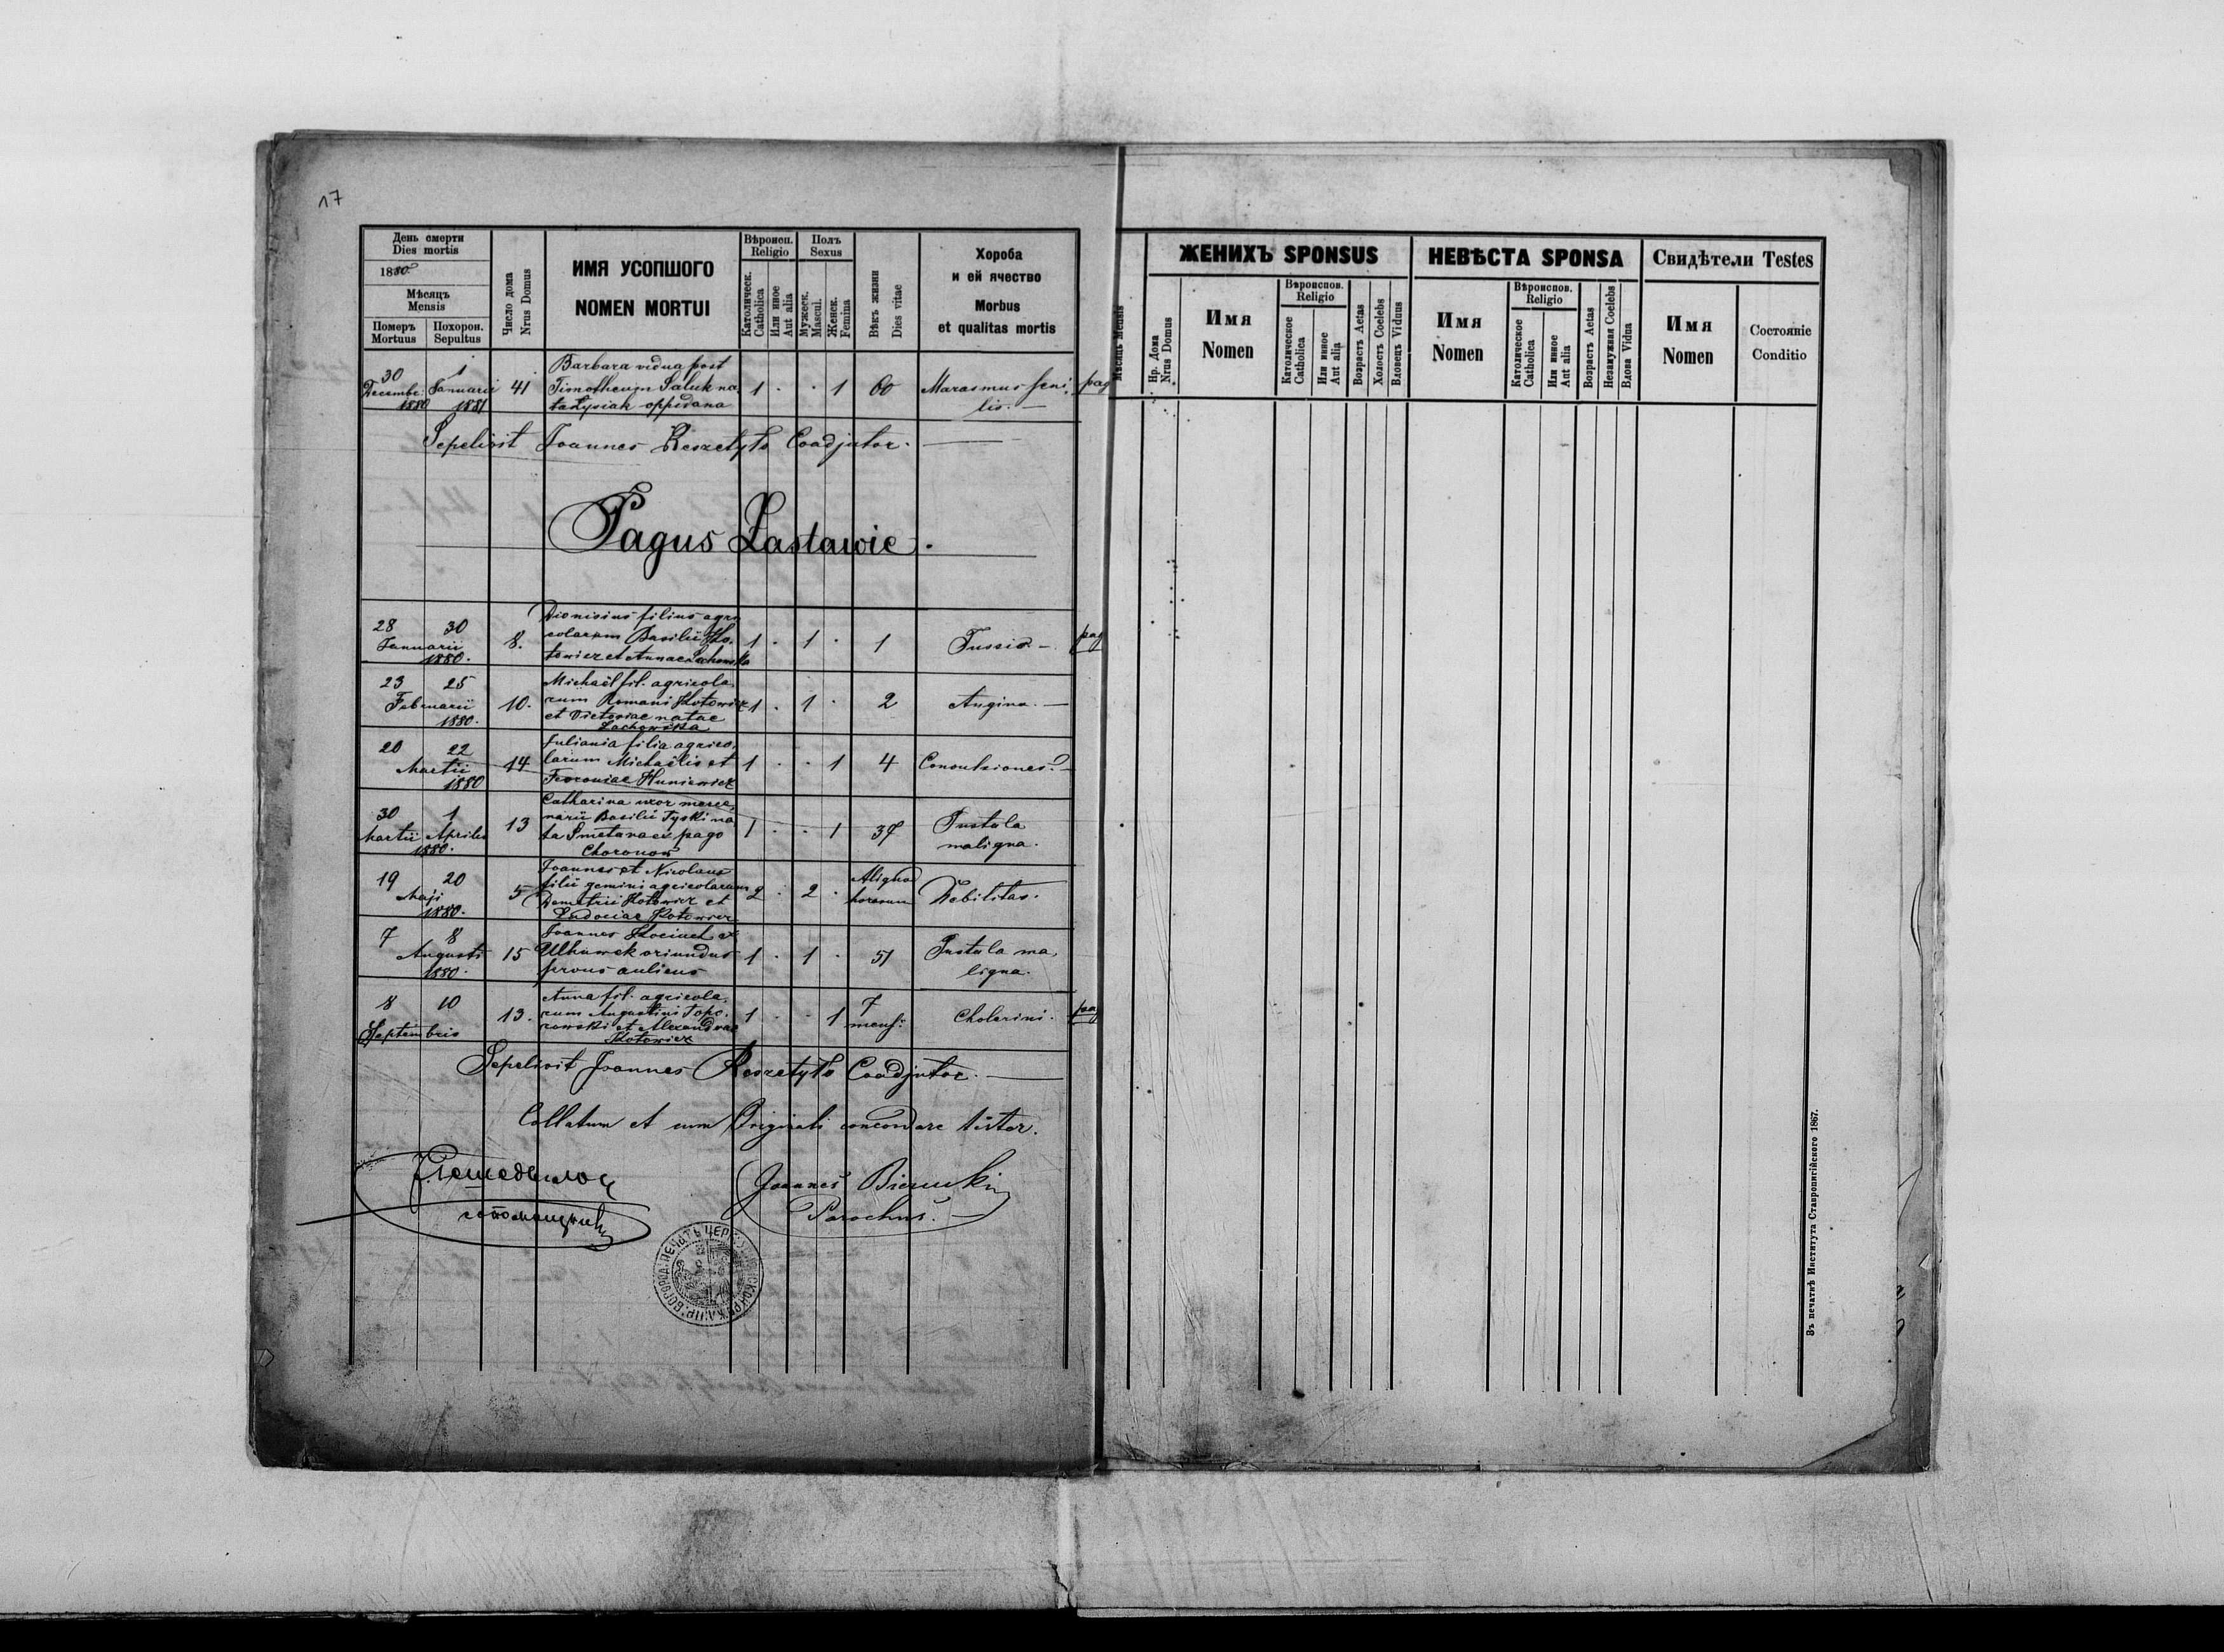 17
День смерти
Dies mortis
1880
Мѣсяцъ
Mensis
Померъ
Mortuus
Похорон.
Sepultus
Число дома
Nrus Domus
ИМЯ УСОПШОГО
NOMEN MORTUI
Вѣроисп.
Religio
Католическ.
Catholica
Или иное
Aut alia
Полъ
Sexus
Мужеск.
Mascul.
Женск.
Femina
Вѣкъ жизни
Dies vitae
Хороба
и ей ячество
Morbus
et qualitas mortis
30 1 Barbara vidua post
Decembr. Januarii 41 Timotheum Saluk na, 1 . . 1 60 Marasmus seni, pag
1880 1881 ta Łysiak oppidana lis. —
Sepelivit Joannes Reszetyło Coadjutor. —
Pagus Zastawie.
Dionisius filius agri
28 30 8. colarum Basilii Ko, 1 . 1 . 1 Tussis —. pag
Januarii towicz et Annae Lachowska
1880.
23 25 Michaël fil. agricola,
Februarii 10. rum Romani Kotowicz 1 . 1 . 2 Angina. —
1880. et Victoriae natae
Lachowska
20 22 Juliania filia agrico,
Martii 14 larum Michaëlis et 1 . . 1 4 Convulsiones. —
1880 Fevroniae Huniewicz
30 1 Catharina uxor merce,
Martii Aprilis 13 narii Basilii Tyski na 1 . . 1 37 Pustula
1880. ta Smetana ex pago maligna.
Choronow
19 20 Joannes et Nicolaus
Maji 5 filii gemini agricolarum 2 . 2 . Aliquod horarum Debilitas.
1880. Demetrii Kotowicz et
Eudociae Kotowicz
7 8 Joannes Kociuch ex
Augusti 15 Uhnowek oriundus 1 . 1 . 51 Pustula ma,
1880. servus aulicus ligna.
8 10 Anna fil. agricola,
Septembris 13. rum Augustini Topo, 1 . . 1 7 mens: Cholerini. pag
rowski et Alexandrae
Kotowicz
Sepelivit Joannes Reszetyło Coadjutor. —
Collatum et cum Originali concordare testor.
Joannes
Parochus. —
ПЕЧАТЬ ЦЕРК.
Мѣсяцъ Mensis
Нр. Дома
Nrus Domus
ЖЕНИХЪ SPONSUS
Имя
Nomen
Вѣроиспов.
Religio
Католическое
Catholica
Или иное
Aut alia
Возрастъ Aetas
Холостъ Coelebs
Вдовецъ Viduus
НЕВѢСТА SPONSA
Имя
Nomen
Вѣроиспов.
Religio
Католическое
Catholica
Или иное
Aut alia
Возрастъ Aetas
Незамужная Coelebs
Вдова Vidua
Свидѣтели Testes
Имя
Nomen
Состояніе
Conditio
Въ печатнѣ Института Ставропигійского 1867.